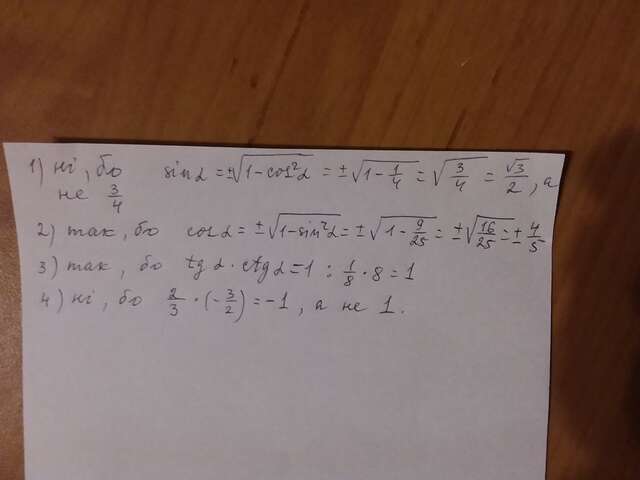 1) ні, бо sinα = ±√(1-cos²α) = ±√(1-1/4) = √(3/4) = √3/2, а
не 3/4
2) так, бо cosα = ±√(1-sin²α) = ±√(1-9/25) = ±√(16/25) = ±4/5
3) так, бо tgα · ctgα = 1 : 1/8 · 8 = 1
4) ні, бо 2/3 · (-3/2) = -1, а не 1.